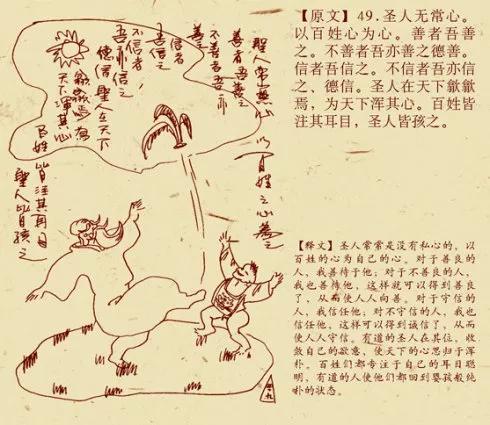 聖人常無心
以百姓之心為之
善者吾善之
不善者吾亦
善之
信者
吾信之
不信者
吾亦信之
德信聖人在天下
歙歙焉為
天下渾其心
百姓皆注其耳目
聖人皆孩之
【原文】49.圣人无常心。
以百姓心为心。善者吾善
之。不善者吾亦善之德善。
信者吾信之。不信者吾亦信
之、德信。圣人在天下歙歙
焉,为天下浑其心。百姓皆
注其耳目,圣人皆孩之。
【释文】圣人常常是没有私心的,以
百姓的心为自己的心。对于善良的
人,我善待于他;对于不善良的人,
我也善待他,这样就可以得到善良
了,从而使人人向善。对于守信的
人,我信任他;对不守信的人,我也
信任他,这样可以得到诚信了,从而
使人人守信。有道的圣人在其位,收
敛自己的欲意,使天下的心思归于浑
朴。百姓们都专注于自己的耳目聪
明,有道的人使他们都回到婴孩般纯
朴的状态。